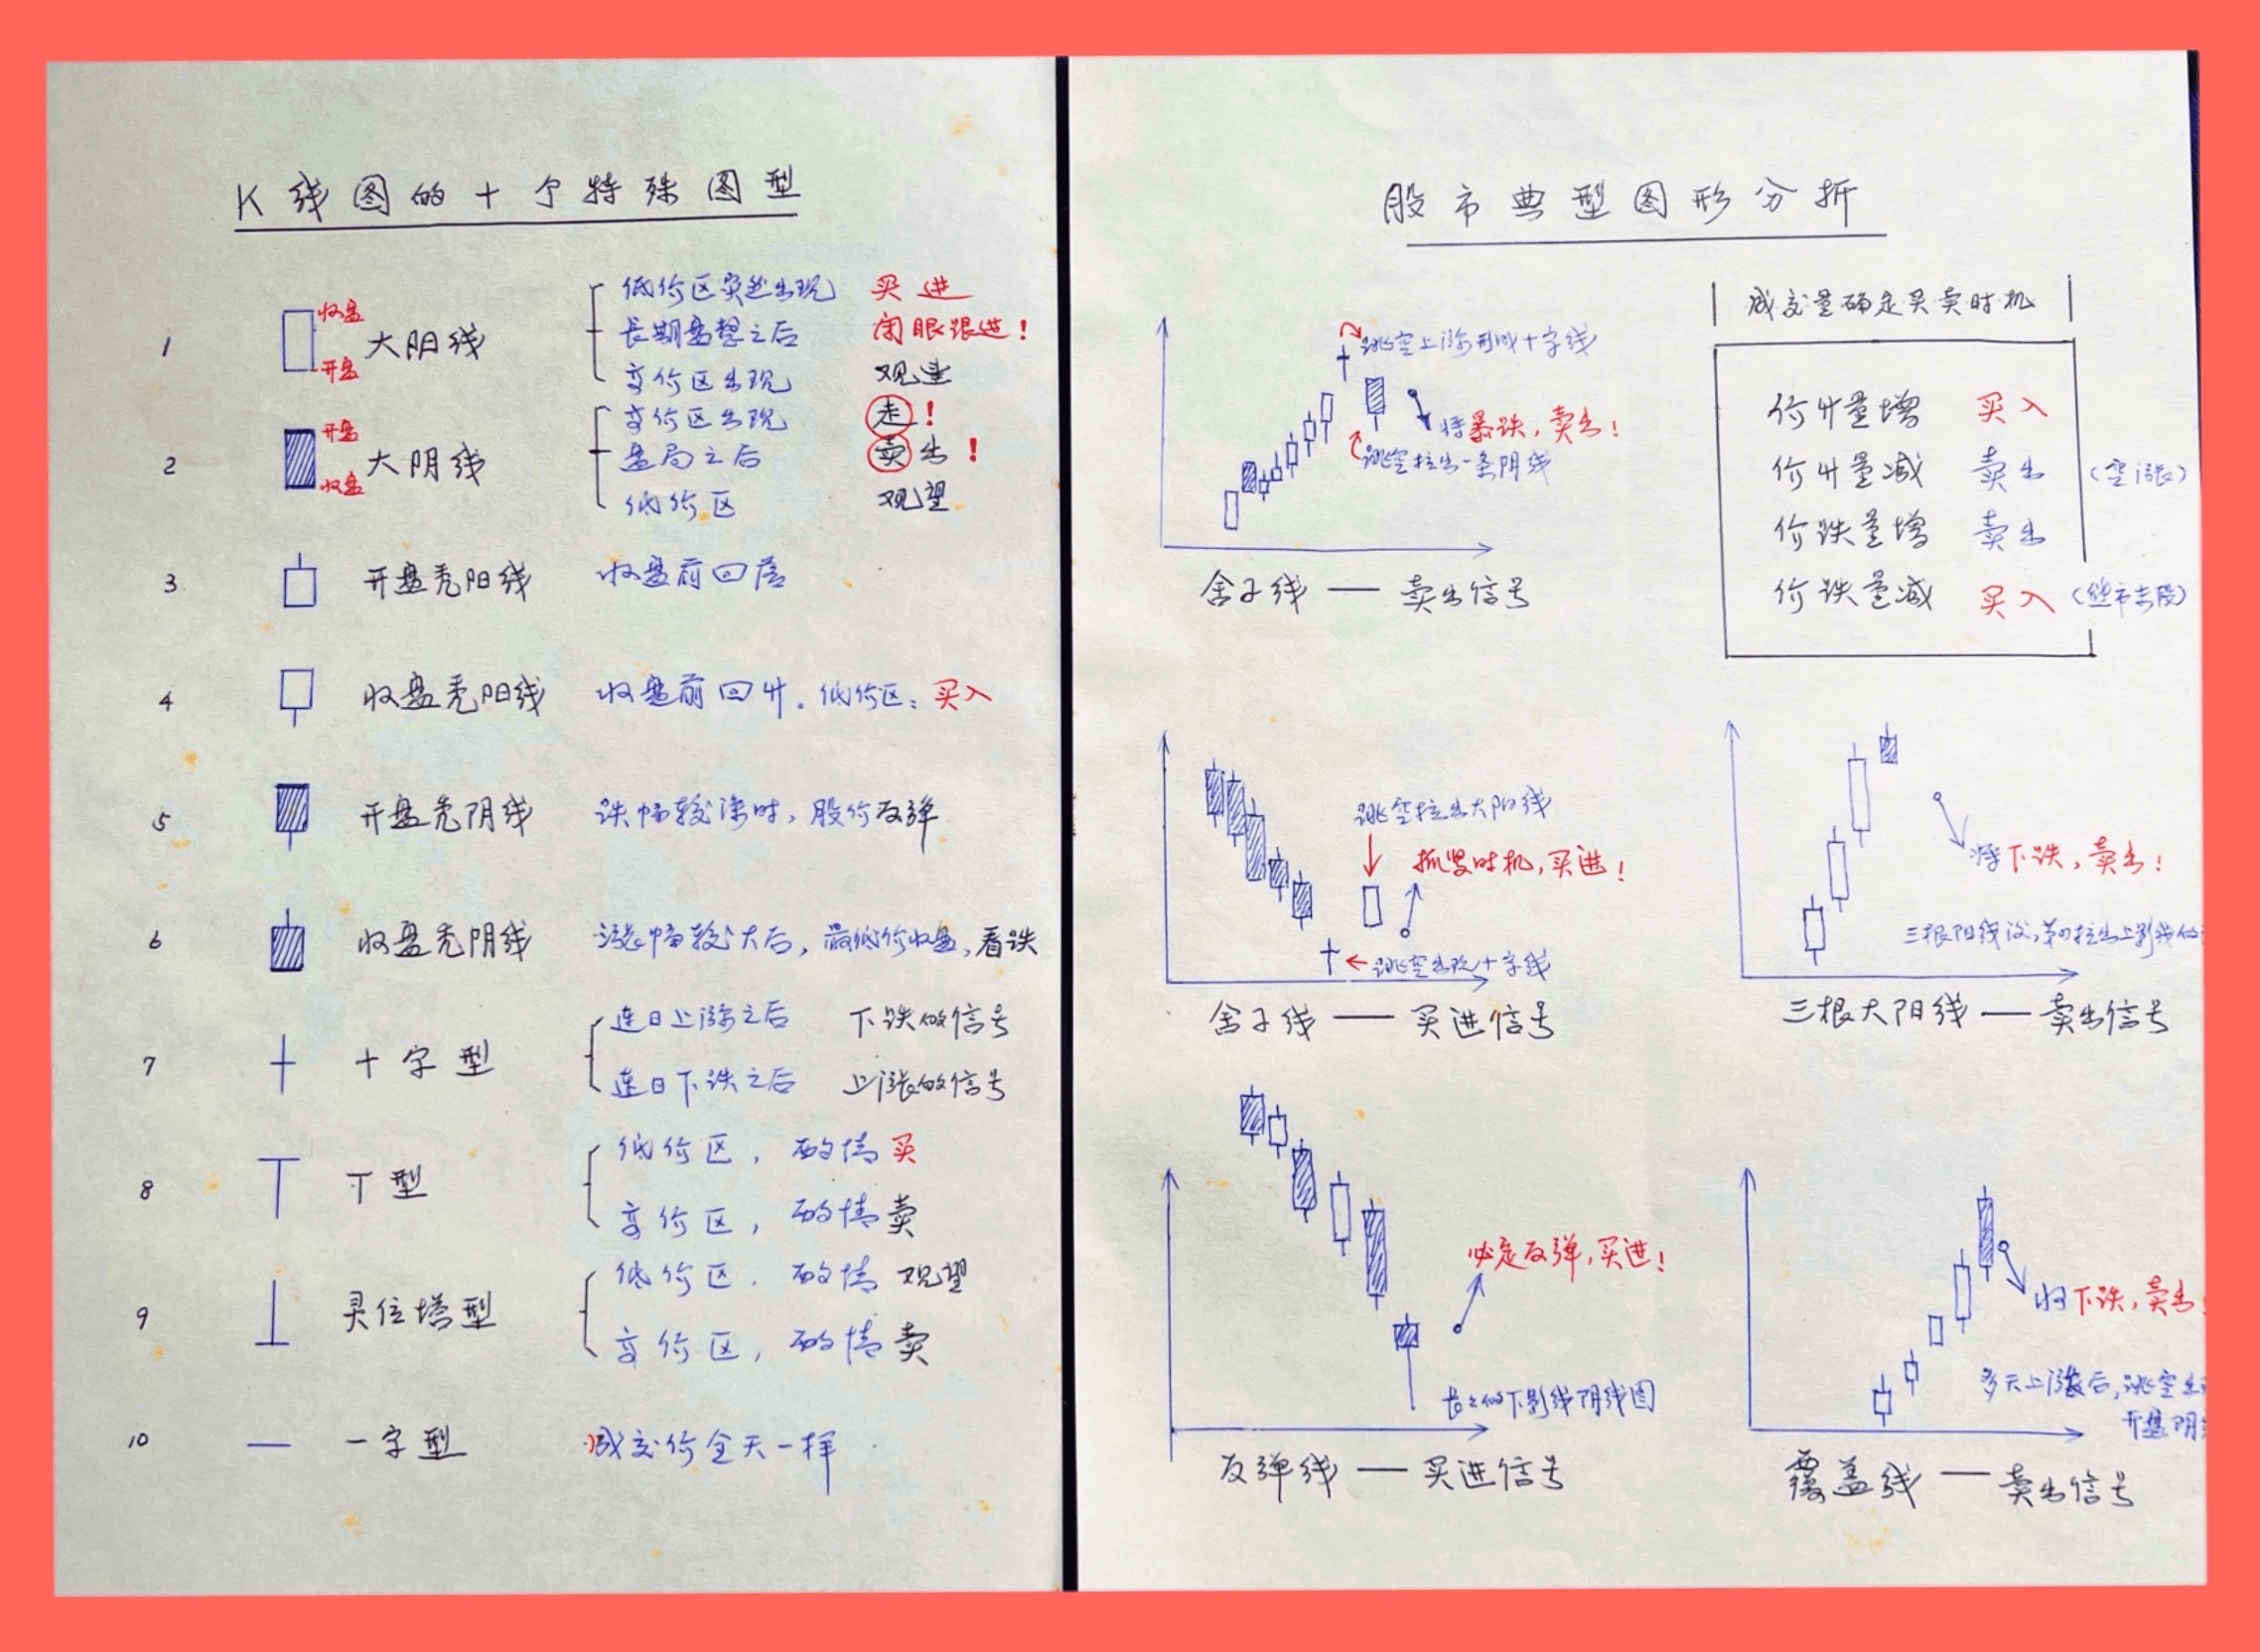 K线图的十个特殊图型
1 收盘 开盘 大阳线
低价区突然出现 买进
长期盘整之后 闭眼跟进!
高价区出现 观望
2 开盘 收盘 大阴线
高价区出现 走!
盘局之后 卖出!
低价区 观望
3 开盘秃阳线 收盘前回落
4 收盘秃阳线 收盘前回升。低价区:买入
5 开盘秃阴线 跌幅较深时,股价反弹
6 收盘秃阴线 涨幅较大后,最低价收盘,看跌
7 十字型
连日上涨之后 下跌的信号
连日下跌之后 上涨的信号
8 T型
低价区,酌情买
高价区,酌情卖
9 灵位塔型
低价区,酌情观望
高价区,酌情卖
10 一字型 成交价全天一样
股市典型图形分折
跳空上涨形成十字线
将暴跌,卖出!
跳空拉出一条阴线
舍子线——卖出信号
成交量确定买卖时机
价升量增 买入
价升量减 卖出 (空涨)
价跌量增 卖出
价跌量减 买入
跳空拉出大阳线
抓紧时机,买进!
跳空出现十字线
舍子线——买进信号
将下跌,卖出!
三根阳线后,第四拉出上影线的
三根大阳线——卖出信号
必定反弹,买进!
长长的下影线阴线图
反弹线——买进信号
将下跌,卖出!
多天上涨后,跳空
开盘阴
覆盖线——卖出信号